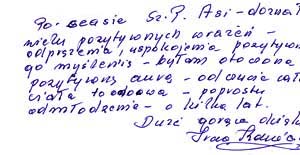 Po seansie Sz. P. Asi - doznał
wielu pozytywnych wrażeń -
odprężenia, uspokojenia pozytywne
go myślenia - byłam otoczona
pozytywną aurą - odnowa cał
ciała - po prostu
odmłodzenia - o kilka lat.
Duże gorące dzięk